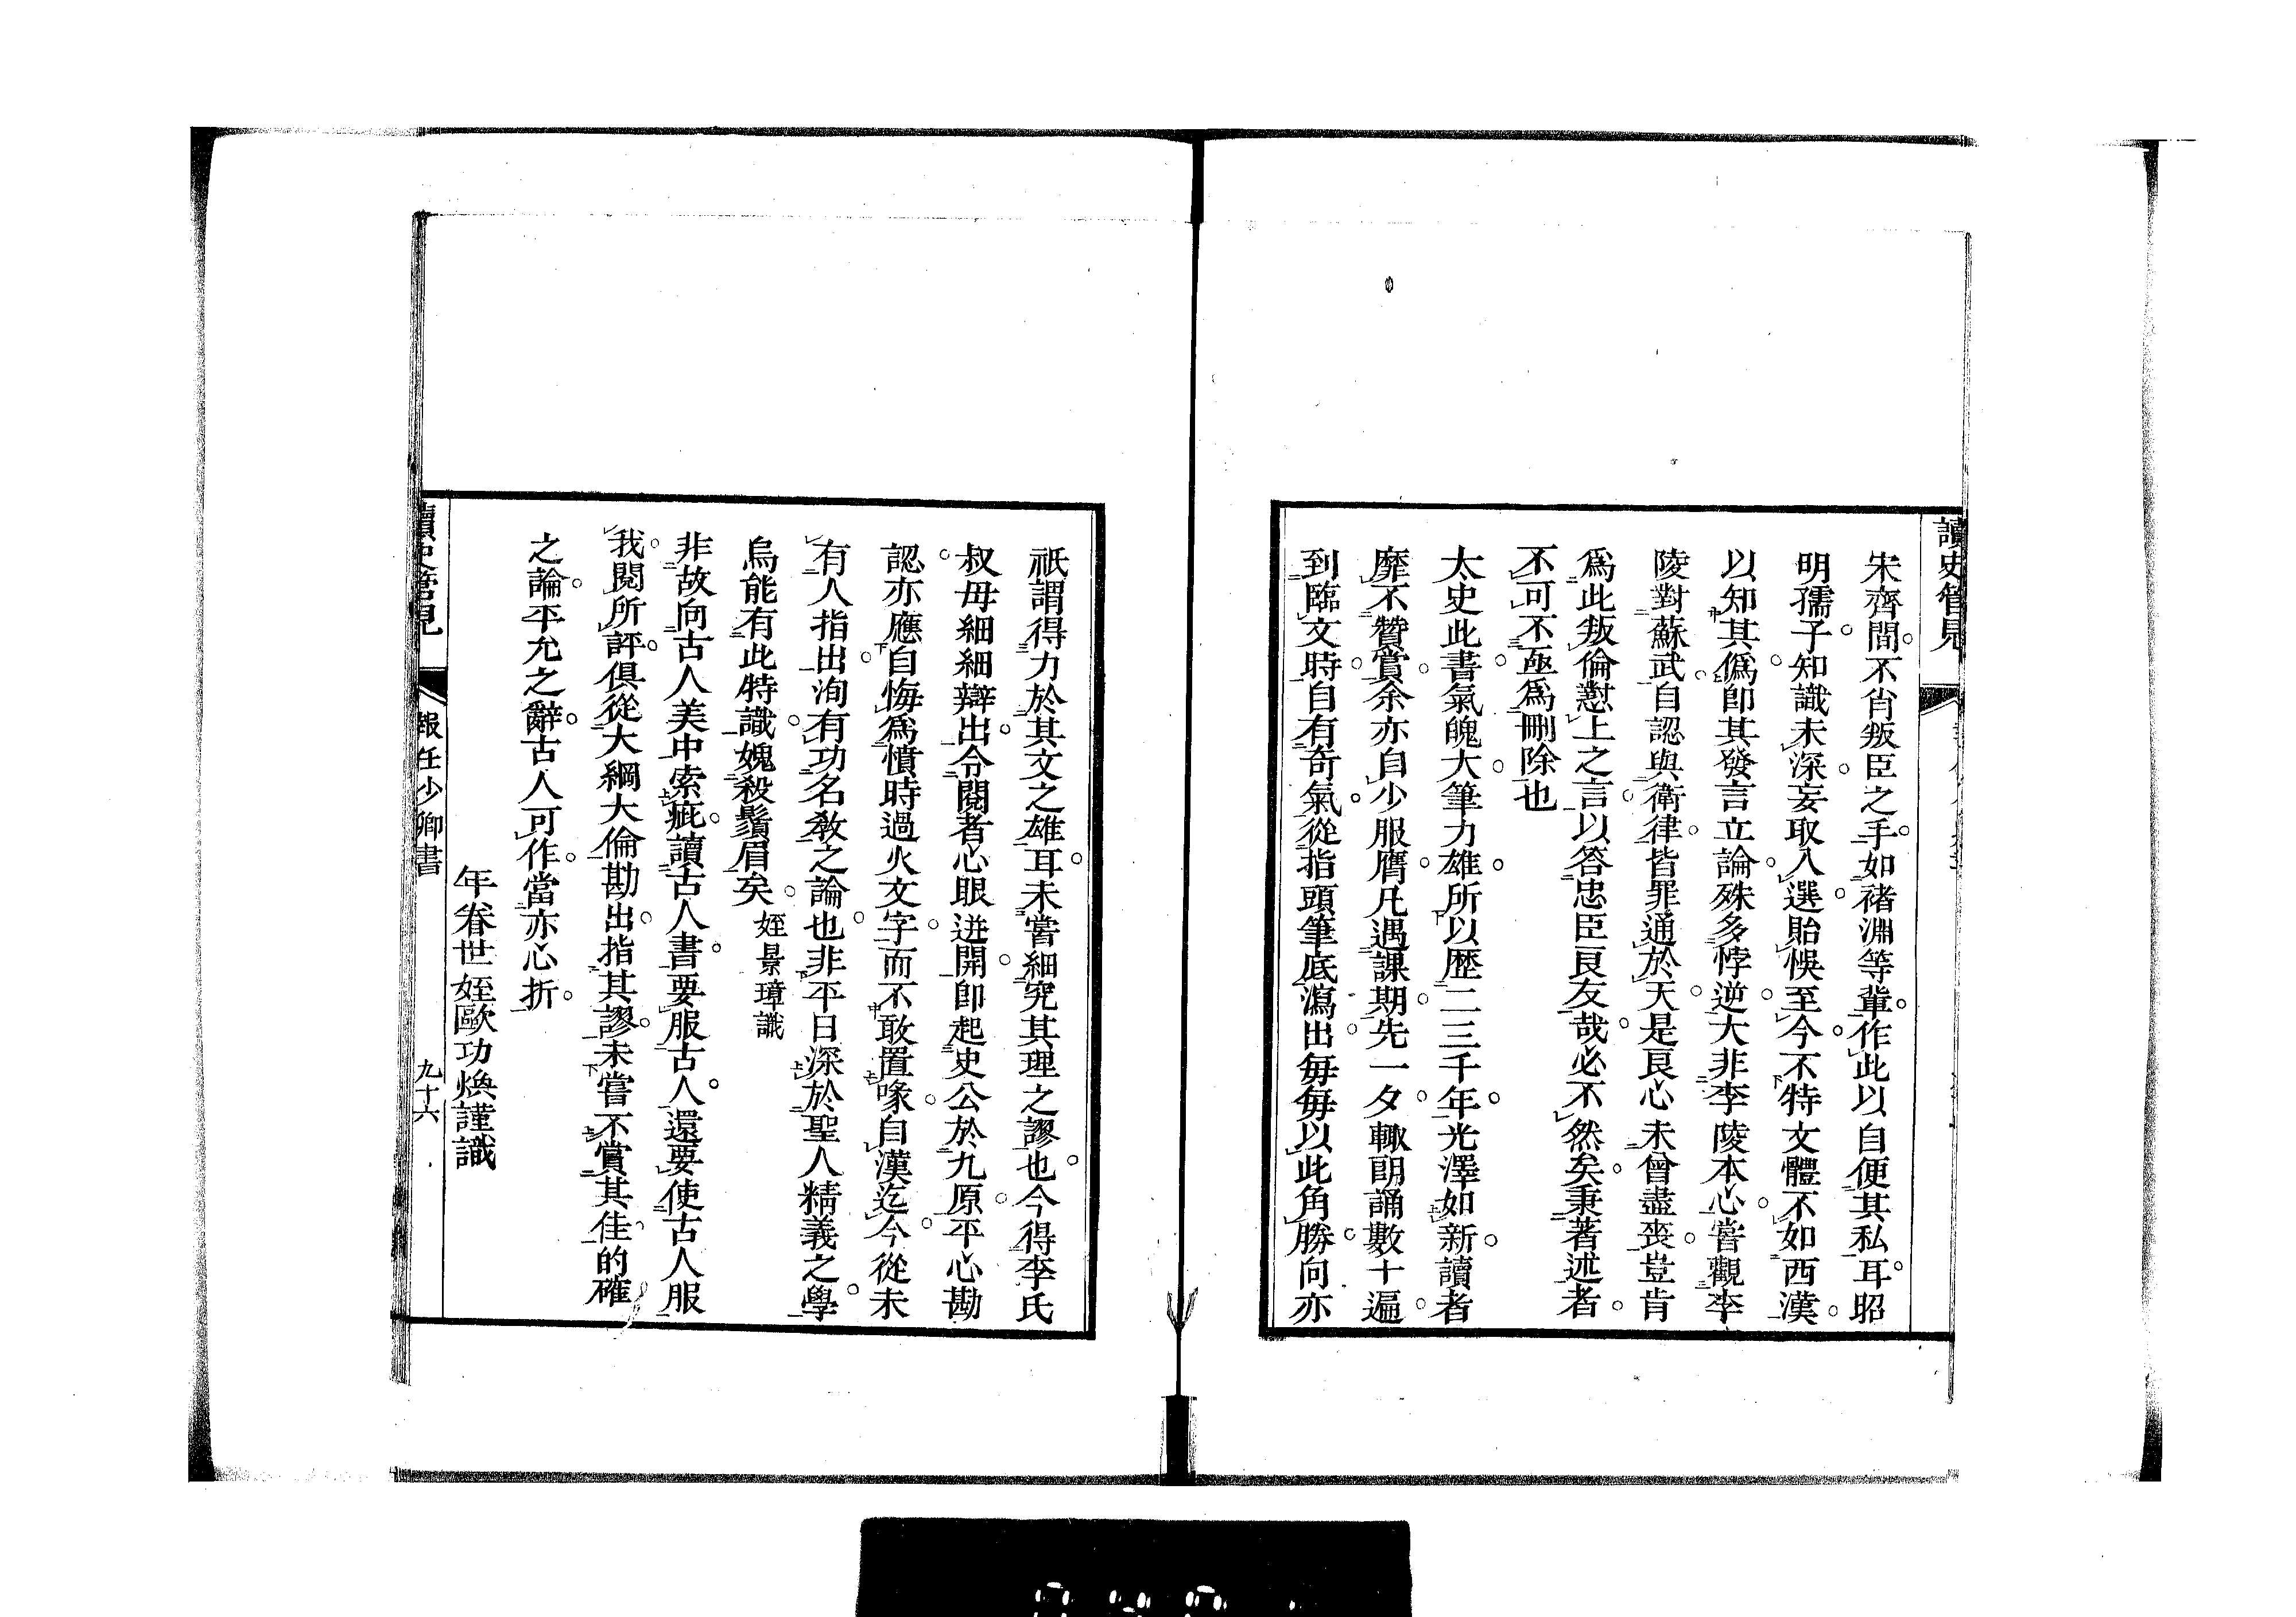 讀史管見
宋齊間不肖叛臣之手如褚淵等輩作此以自便其私耳昭
明孺子知識未深妄取入選貽悞至今不特文體不如西漢
以知其僞卽其發言立論殊多悖逆大非李陵本心嘗觀李
陵對蘇武自認與衛律皆罪通於天是良心未曾盡喪豈肯
爲此叛倫懟上之言以答忠臣良友哉必不然矣秉著述者
不可不亟爲刪除也
太史此書氣魄大筆力雄所以歷二三千年光澤如新讀者
靡不贊賞余亦自少服膺凡遇課期先一夕輙朗誦數十遍
到臨文時自有奇氣從指頭筆底瀉出每每以此角勝向亦
祇謂得力於其文之雄耳未嘗細究其理之謬也今得李氏
叔母細細辯出令閱者心眼迸開卽起史公於九原平心勘
認亦應自悔爲憤時過火文字而不敢置喙自漢迄今從未
有人指出洵有功名敎之論也非平日深於聖人精義之學
烏能有此特識媿殺鬚眉矣 姪景璋識
非故向古人美中索疵讀古人書要服古人還要使古人服
我閱所評俱從大綱大倫勘出指其謬未嘗不賞其佳的確
之論平允之辭古人可作當亦心折
年眷世姪歐功煥謹識
讀史管見
報任少卿書
九十六